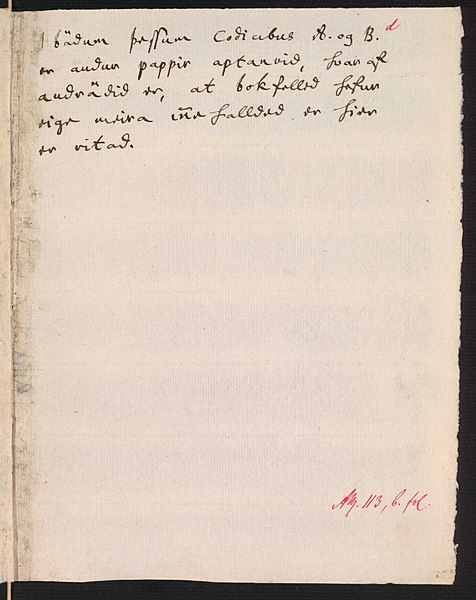 J bädum þessum Codicibus A. og B. d
er audur pappir aptanvid, hvar af
audrädid er, at bokfelled hefur
eige meira iñehalldid er hier
er ritad.
AM. 113, b. fol.